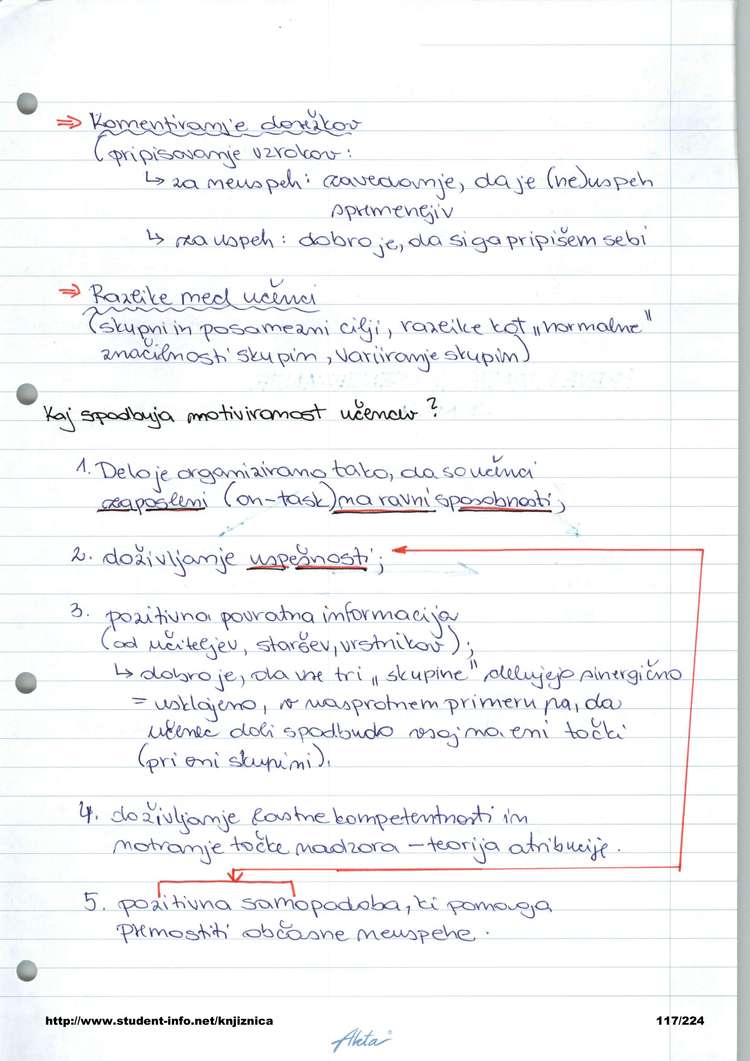 ⇒ Komentiranje dosežkov
(pripisovanje vzrokov:
↳ za neuspeh: zavedanje, da je (ne)uspeh
spremenljiv
↳ za uspeh: dobro je, da si ga pripišem sebi
⇒ Razlike med učenci
(skupni in posamezni cilji, razlike kot „normalne"
značilnosti skupin, variiranje skupin)
Kaj spodbuja motiviranost učencev?
1. Delo je organizirano tako, da so učenci
zaposleni (on-task) na ravni sposobnosti;
2. doživljanje uspešnosti;
3. pozitivna povratna informacija
(od učiteljev, staršev, vrstnikov);
↳ dobro je, da vse tri „skupine" delujejo sinergično
= usklajeno, v nasprotnem primeru pa, da
učenec dobi spodbudo vsaj na eni točki
(pri eni skupini).
4. doživljanje lastne kompetentnosti in
notranje točke nadzora – teorija atribucije.
5. pozitivna samopodoba, ki pomaga
premostiti občasne neuspehe.
http://www.student-info.net/knjiznica 117/224